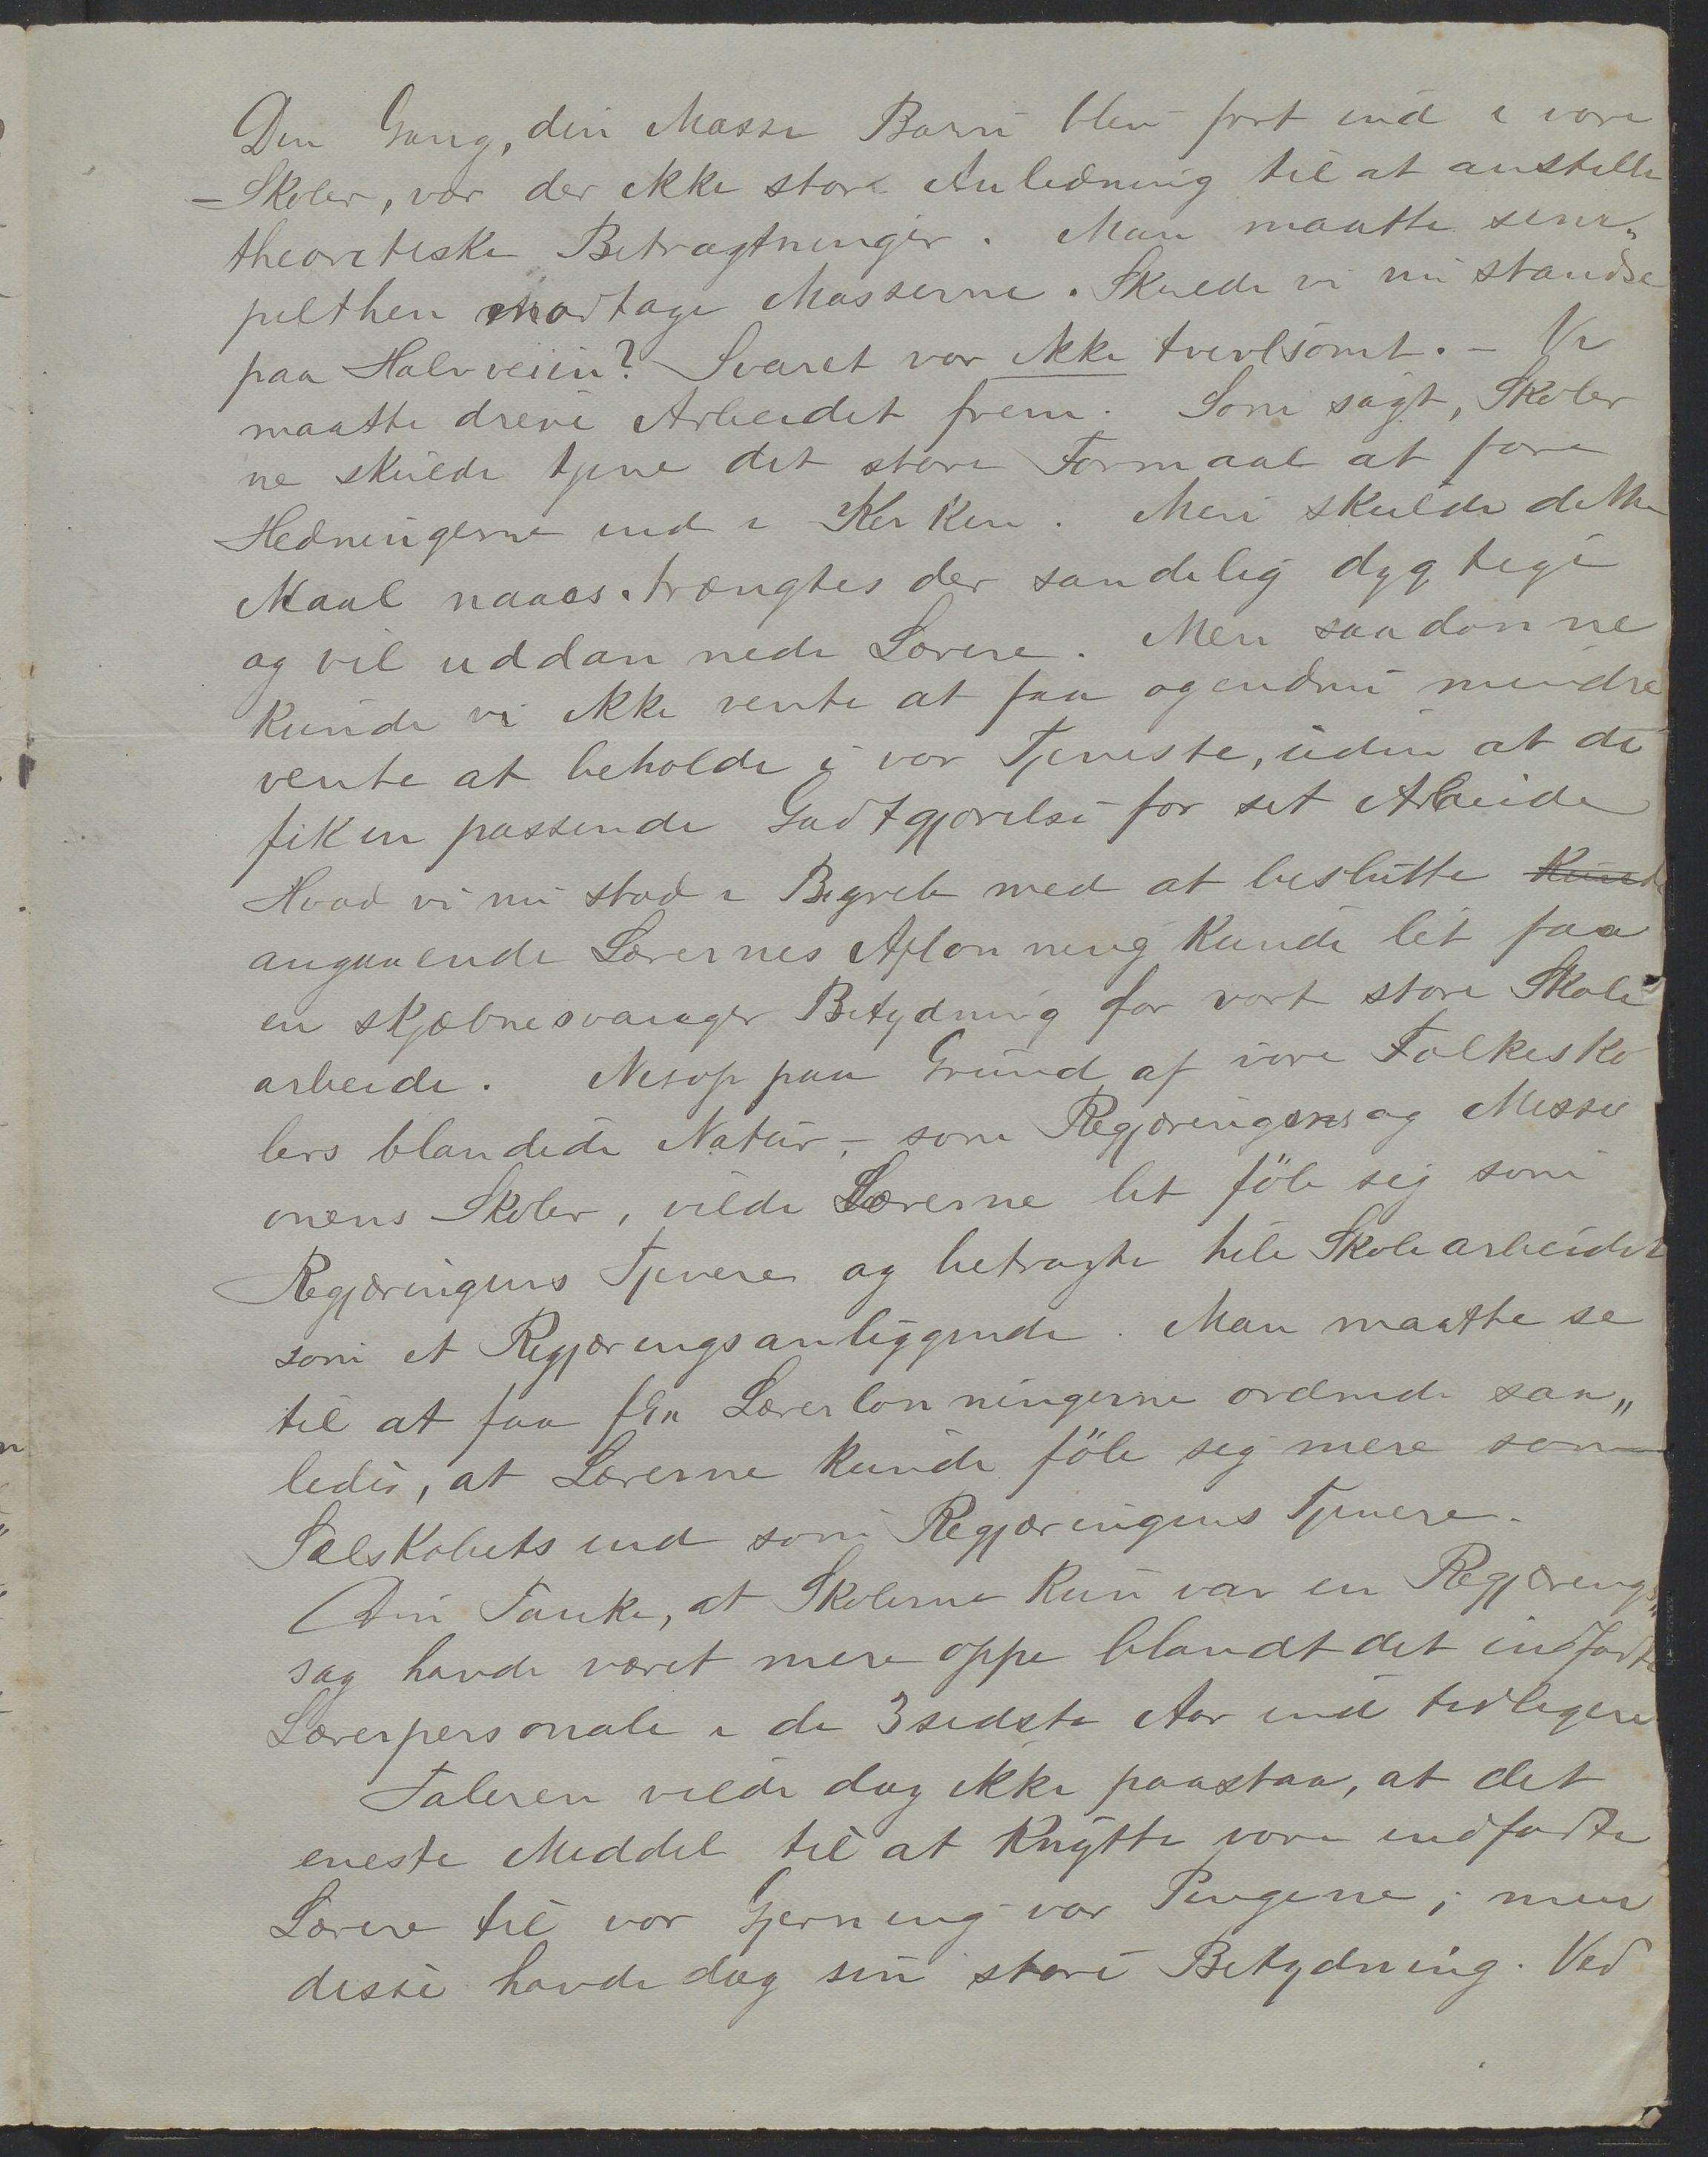 Den Gang, den Masse Børn blev ført ind i vore
Skoler, var der ikke store Anledning til at anstille
theoretiske Betragtninger. Man maatte sim„
pelthen modtage Masserne. Skulde vi nu standse
paa Halvveien? Svaret var ikke tvivlsomt. – Vi
maatte drive Arbeidet frem. Som sagt, Skoler
ne skulde tjene det store Formaal at føre
Hedningerne ind i Kirken. Men skulde dette
Maal naaes. trængtes der sandelig dygtige
og vel uddannede Lærere. Men saadanne
kunde vi ikke vente at faa og endnu mindre
vente at beholde i vor Tjeneste, uden at de
fik en passende Godtgjørelse for sit Arbeide
Hvad vi nu stod i Begreb med at beslutte kunde
angaaende Lærernes Aflønning kunde let faa
en skjæbnesvanger Betydning for vort store Skole
arbeide. Netop paa Grund af vore Folkesko
lers blandede Natur, – som Regjeringens og Missi
onens Skoler, vilde Lærerne let föle sig som
Regjeringens Tjenere og betragte hele Skolearbeidet
som et Regjeringsanliggende. Man maatte se
til at faa Lærerlønningerne ordnede saa„
ledes, at Lærerne kunde föle sig mere som
Selskabets end som Regjeringens Tjenere.
Den Tanke, at Skolerne kun var en Regjerings„
sag havde været mere oppe blandt det indfødte
Lærerpersonale i de 3 sidste Aar end tidligere
Taleren vilde dog ikke paastaa, at det
eneste Middel til at knytte vore indfødte
Lærere til vor Gjerning var Pengene; men
disse havde dog sin store Betydning. Ved